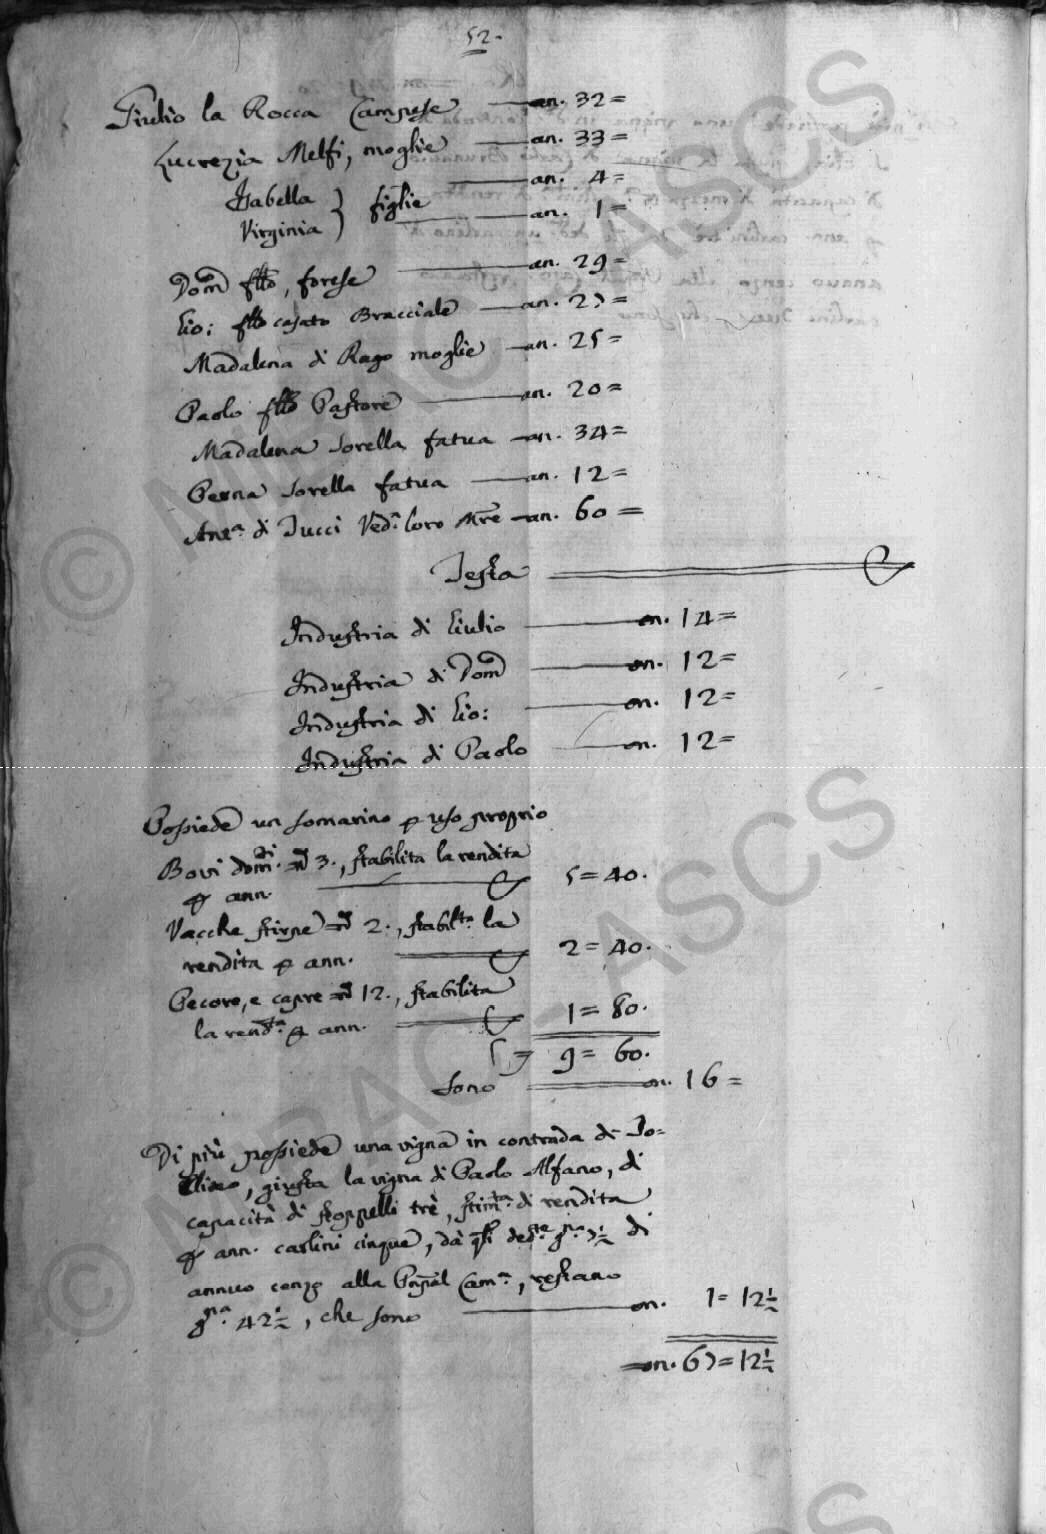 52.
Giulio la Rocca Campese an. 32=
Lucrezia Melfi, moglie an. 33=
Isabella } figlie an. 4=
Virginia } an. 1=
Dom.co fr̃llo, forese an. 29=
Gio: fr̃llo casato Bracciale an. 27=
Madalena di Rago moglie an. 25=
Paolo fr̃llo Pastore an. 20=
Madalena sorella fatua an. 34=
Perna sorella fatua an. 12=
Ant.a di Tucci Ved.a loro Mr̃e an. 60=
Testa
Industria di Giulio on. 14=
Industria di Dom.co on. 12=
Industria di Gio: on. 12=
Industria di Paolo on. 12=
Possiede un somarino p uso proprio
Bovi dom.ti n.o 3., stabilita la rendita
p ann. 5=40.
Vacche stirpe n.o 2., stabil.ta la
rendita p ann. 2=40.
Pecore, e capre n.o 12., stabilita
la rend.ta p ann. 1=80.
9=60.
sono on. 16=
Di più possiede una vigna in contrada di
giusta la vigna di Paolo Alfano, di
capacità di stoppelli trè, stim.ta di rendita
p ann. carlini cinque, dà q̃li ded.te g.na 7½ di
annuo cenzo alla Pnp̃al Cam.a, restano
g.na 42½, che sono on. 1=12½
on. 67=12½
© MIBAC - ASCS
© MIBAC - ASCS